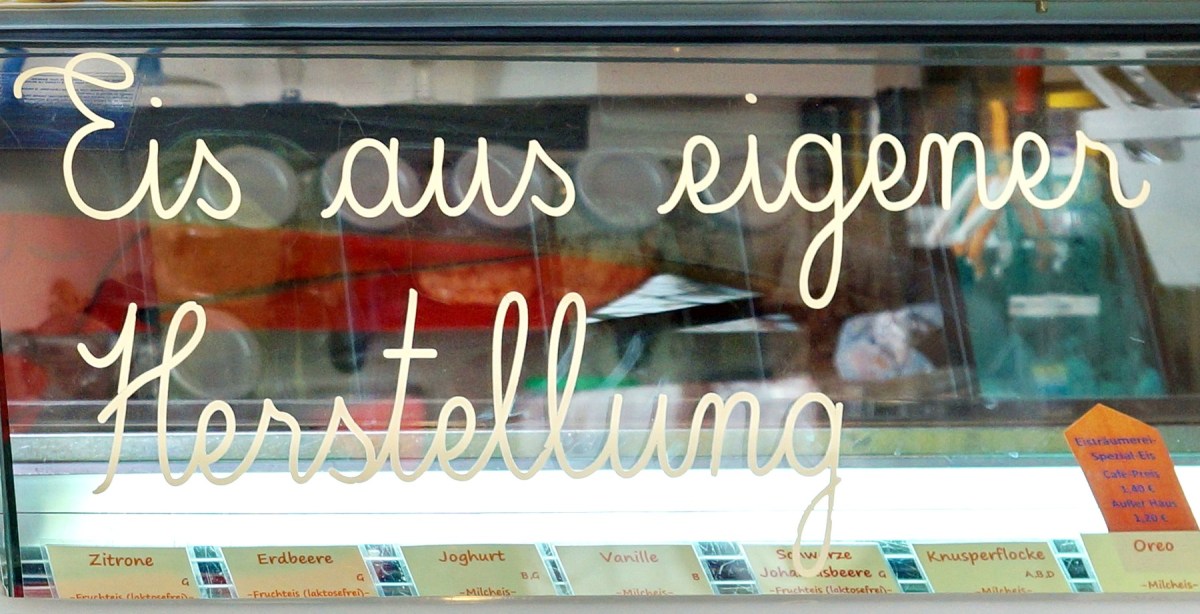 Eis aus eigener
Herstellung
Eisträumerei-
Spezial-Eis
Café-Preis
1,40 €
Außer Haus
1,20 €
Zitrone
G
-Fruchteis (laktosefrei)-
Erdbeere
G
-Fruchteis (laktosefrei)-
Joghurt
B,G
-Milcheis-
Vanille
B
-Milcheis-
Schwarze
Johannisbeere G
-Fruchteis (laktosefrei)-
Knusperflocke
A,B,D
-Milcheis-
Oreo
-Milcheis-